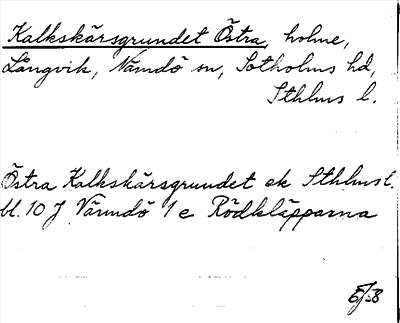 Kalkskärsgrundet Östra, holme,
Långvik, Nämdö sn, Sotholms hd,
Sthlms l.
Östra Kalkskärsgrundet ek Sthlms l.
bl. 10 J Värmdö 1 e Rödkläpparna
EJ58